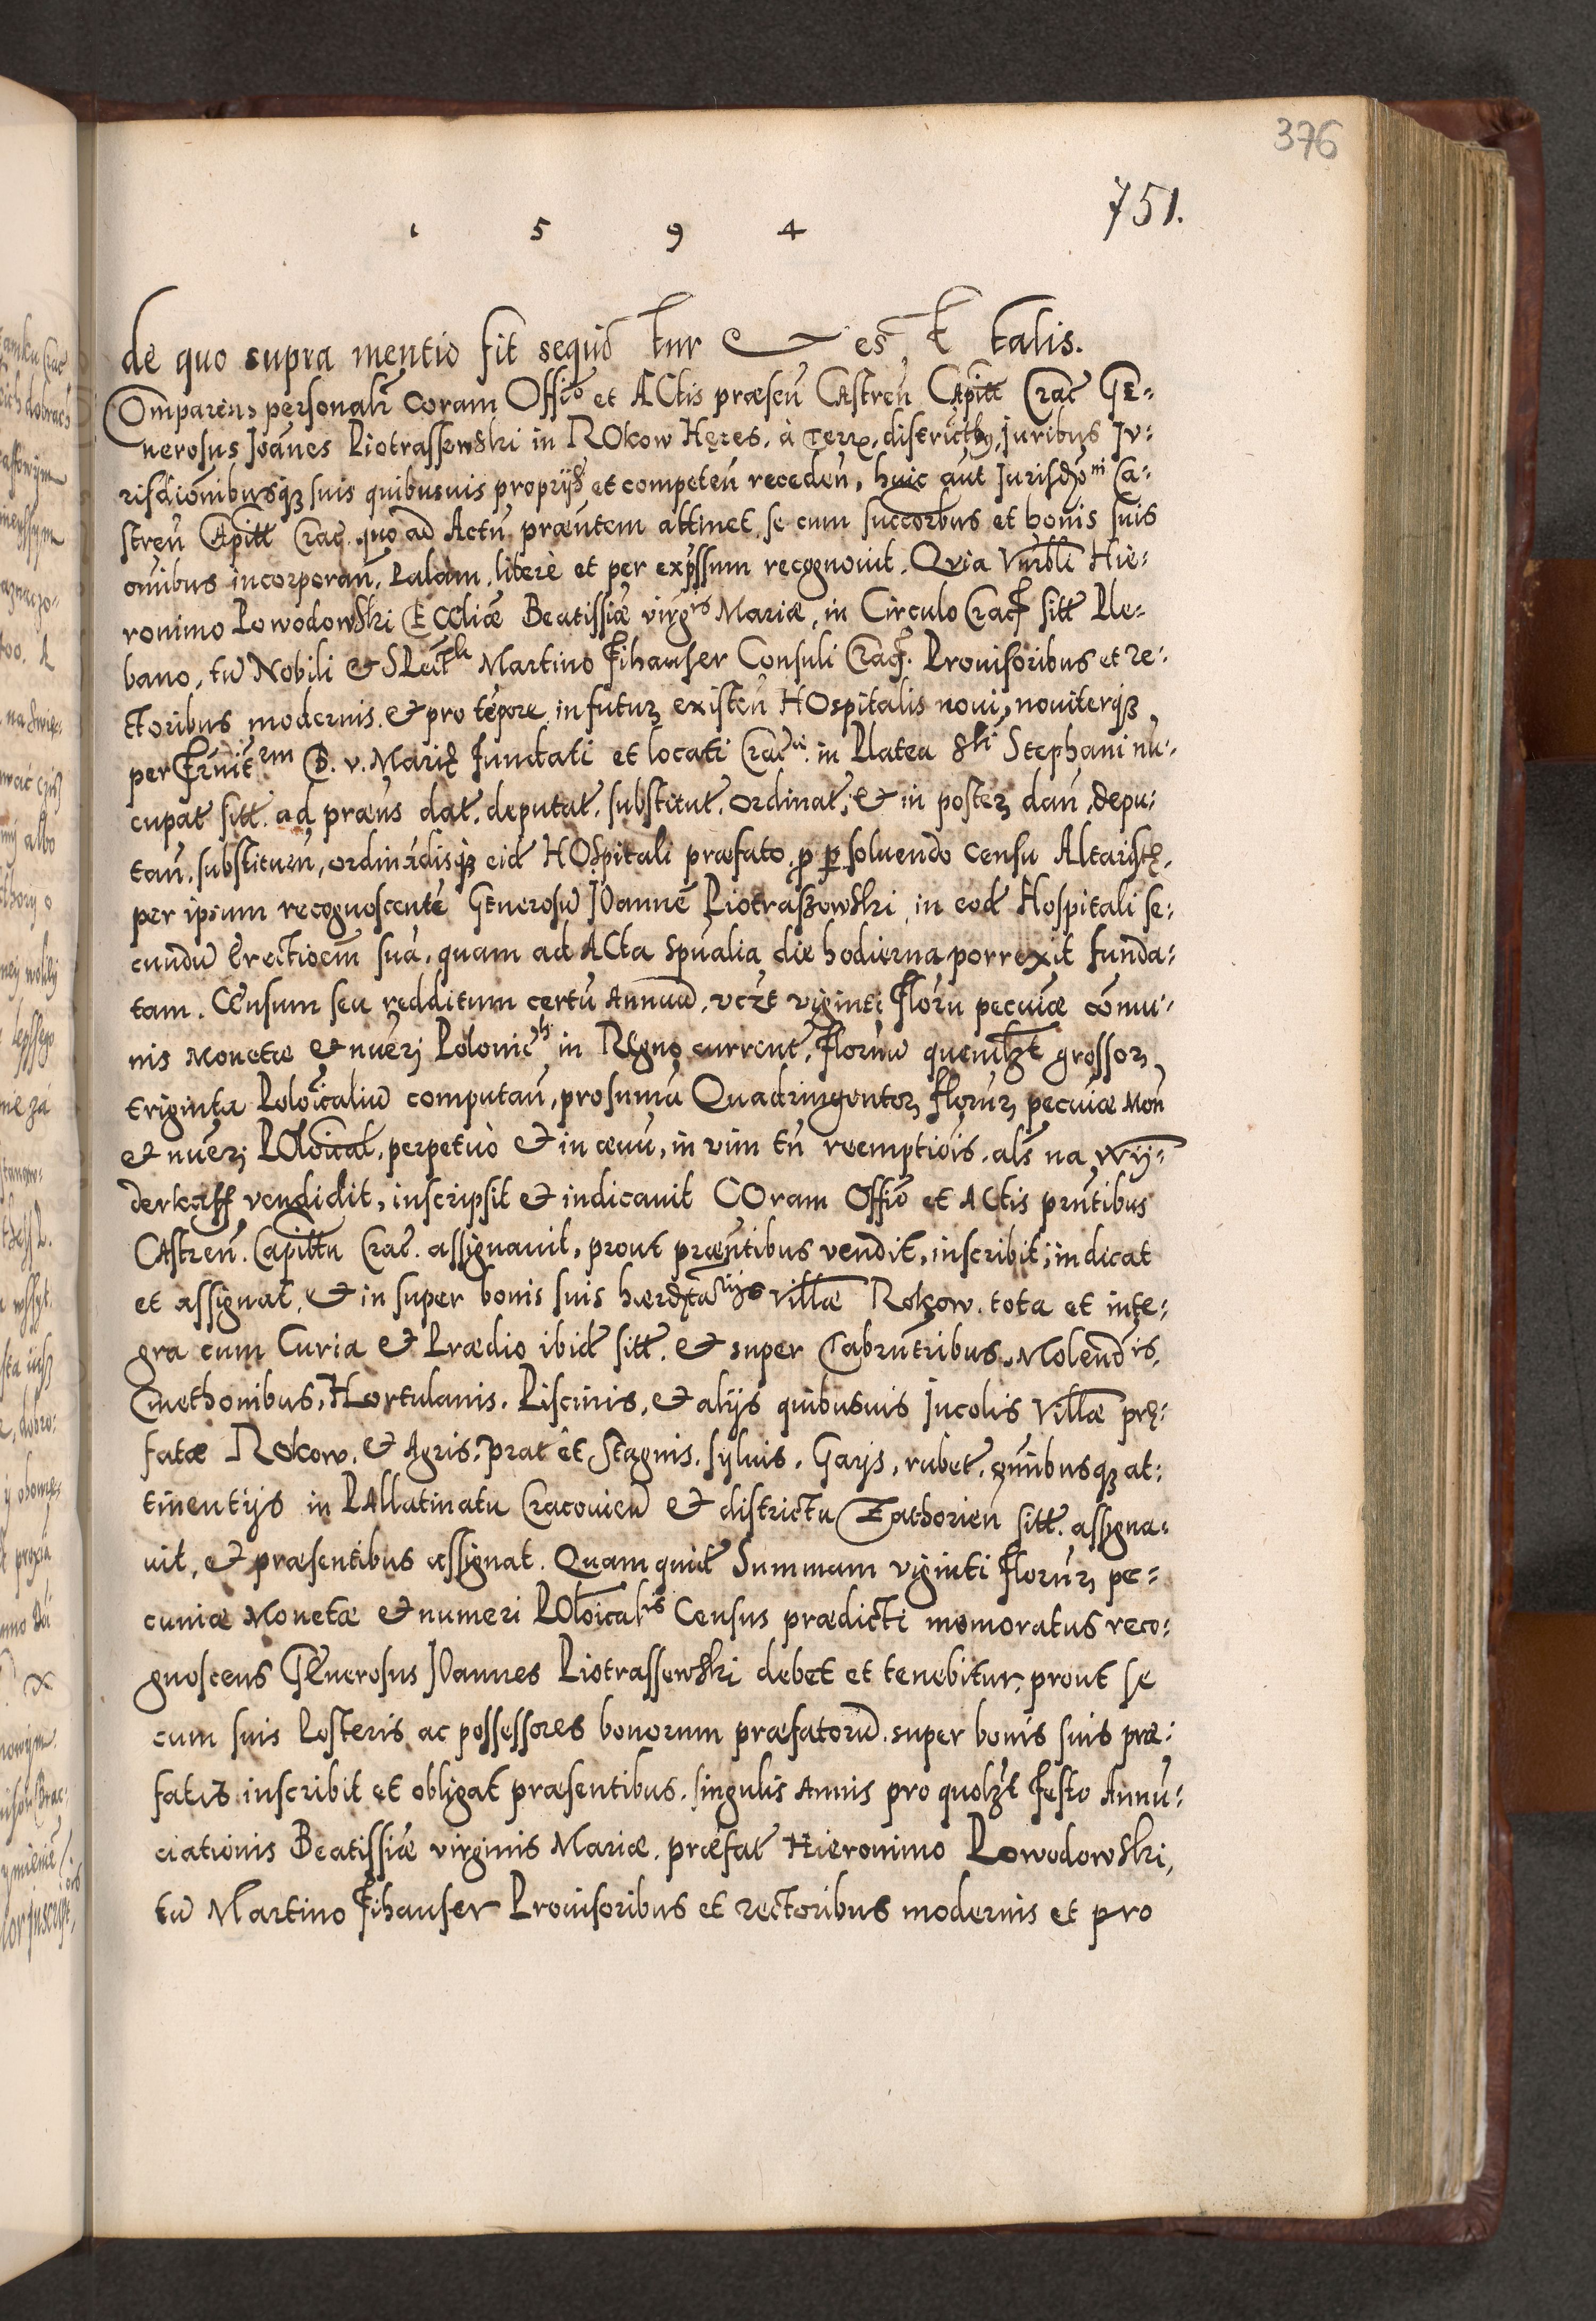 376
751.
1 5 9 4
de quo supra mentio fit sequit tur est talis.
Comparens personalr Coram Offio et ACtis præsen̄ CAstren̄ CApitt Crac̄ GE-
nerosus Joānes Piotrassewski in ROkow Hęres, à Terr, districtb9, Juribus Ju-
risdictionibusqȝ suis quibusuis proprijs et competen̄ receden̄, huic aut̄ Jurisdōni Ca-
stren̄ CApitt Crac̄ quo ad Actū præntem attinet, se cum succorbus et bonis suis
omībus incorporan̄, Palam, liberè et per exp̄ssum recognouit, Quia Vnrbli Hie-
ronimo Powodowski ECcliæ Beatissiæ virgis Mariæ, in Circulo Crac sitt Ple-
bano, tū Nobili & SPectli Martino Fihauser Consuli Crac. Prouisoribus et re-
ctoribus modernis, & pro tēpore in futurȝ existen̄ HOspitalis noui, nouiterqȝ
per Frnit̄em B. v. Marię fundati et locati Cracæ in Platea Sti Stephani nū-
cupat sitt ad præns dat, deputat, substitut, ordinat, & in posterȝ dan̄, depu-
tan̄, substituen̄, ordinādisqȝ eid HOspitali præfato, p persoluendo Censu Altaristę,
per ipsum recognoscentē GEnerosū JOannē Piotraszowski, in eod Hospitali se-
cundū Erectioem̄ suā, quam ad ACta Spūalia die hodierna porrexit funda-
tam. CEnsum seu redditum certū Annuū, vczt viginti Florū pecuiæ cōmu-
nis Monetæ & nūeri Poloniclh in REgno current, Florenū quemlzt grossorȝ
triginta Poloīcaliū computan̄, pro sumā Quadringentorȝ florūrȝ pecuiæ Mon
& nūeri POloīcal, perpetuò & in ævū, in vim tn̄ reemptiōis, als na Wij-
derkaff vendidit, inscripsit & indicauit COram Offio et ACtis prn̄tibus
CAstren̄ Capittu Crac̄ assignauit, prout præn̄tibus vendit, inscribit, indicat
et assignat, & in super bonis suis hærdtarijs Villæ Rokow, tota et inte-
gra cum Curia & Prædio ibid sitt, & super Tabrn̄tribus, Molendis,
Cmethonibus, Hortulanis, Piscinis, & alijs quibusuis Jncolis Villæ prę-
fatæ ROkow, & Agris, Prat et Stagnis, Syluis, Gays, rubet, omībusqȝ at-
tinentijs in PAllatinatu Cracouien̄ & districtu Zathorien̄ sitt, assigna-
uit, & præsentibus assignat. Quam quid̄ Summam viginti Florūrȝ pe-
cuniæ Monetæ & numeri POloīcalis Census prædicti memoratus reco-
gnoscens GEnerosus JOannes Piotrassewski debet et tenebitur, prout se
cum suis Posteris ac possessores bonorum præfatorū super bonis suis præ-
fatis inscribit et obligat præsentibus, singulis Annis pro quolzt Festo Annū-
ciationis Beatissiæ virginis Mariæ, præfat Hieronimo Powodowski,
tū Martino Fihauser Prouisoribus et rectoribus modernis et pro